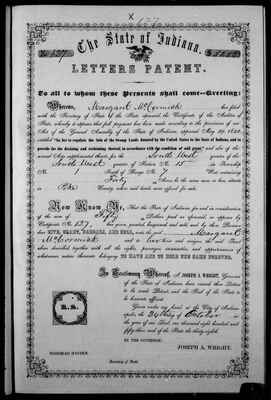 X 637
The State of Indiana.
No 637
LETTERS PATENT.
To all to whom these Presents shall come—Greeting:
Whereas, Margaret McCormick has filed
with the Secretary of State of the State aforesaid the Certificate of the Auditor of
State, whereby it appears that full payment has been made according to the provisions of an
Act of the General Assembly of the State of Indiana, approved May 29, 1852,
entitled "An Act to regulate the Sale of the Swamp Lands donated by the United States to the State of Indiana and to
provide for the draining and reclaiming thereof in accordance with the condition of said grant" and also of the
several Acts supplemental thereto for the South West quarter of the
South West quarter of Section No. 15 in Township
No. 1 of Range No. 7 West containing
Forty Acres be the same more or less, situate
in Pike County, where said lands were offered for sale.
Now Know Ye, That the State of Indiana for and in consideration
of the sum of Fifty Dollars paid as aforesaid, as appears by
Certificate No. 637, has given, granted, bargained and sold and by these Presents
DOES GIVE, GRANT, BARGAIN, AND SELL, unto the said Margaret
McCormick and to her heirs and assigns the said Tract
above described together with all the rights, privileges, immunities, and appurtenances of
whatsoever nature thereunto belonging TO HAVE AND TO HOLD THE SAME FOREVER.
In Testimony Whereof, I, JOSEPH A. WRIGHT, Governor
of the State of Indiana, have caused these Letters
to be made Patent, and the Seal of the State to
be hereunto affixed.
Given under my hand at the City of Indiana-
polis, the 24th day of October in
the year of our Lord, one thousand eight hundred and
fifty-three and of the State the thirty-eighth.
BY THE GOVERNOR:
JOSEPH A. WRIGHT.
NEHEMIAH HAYDEN
Secretary of State.